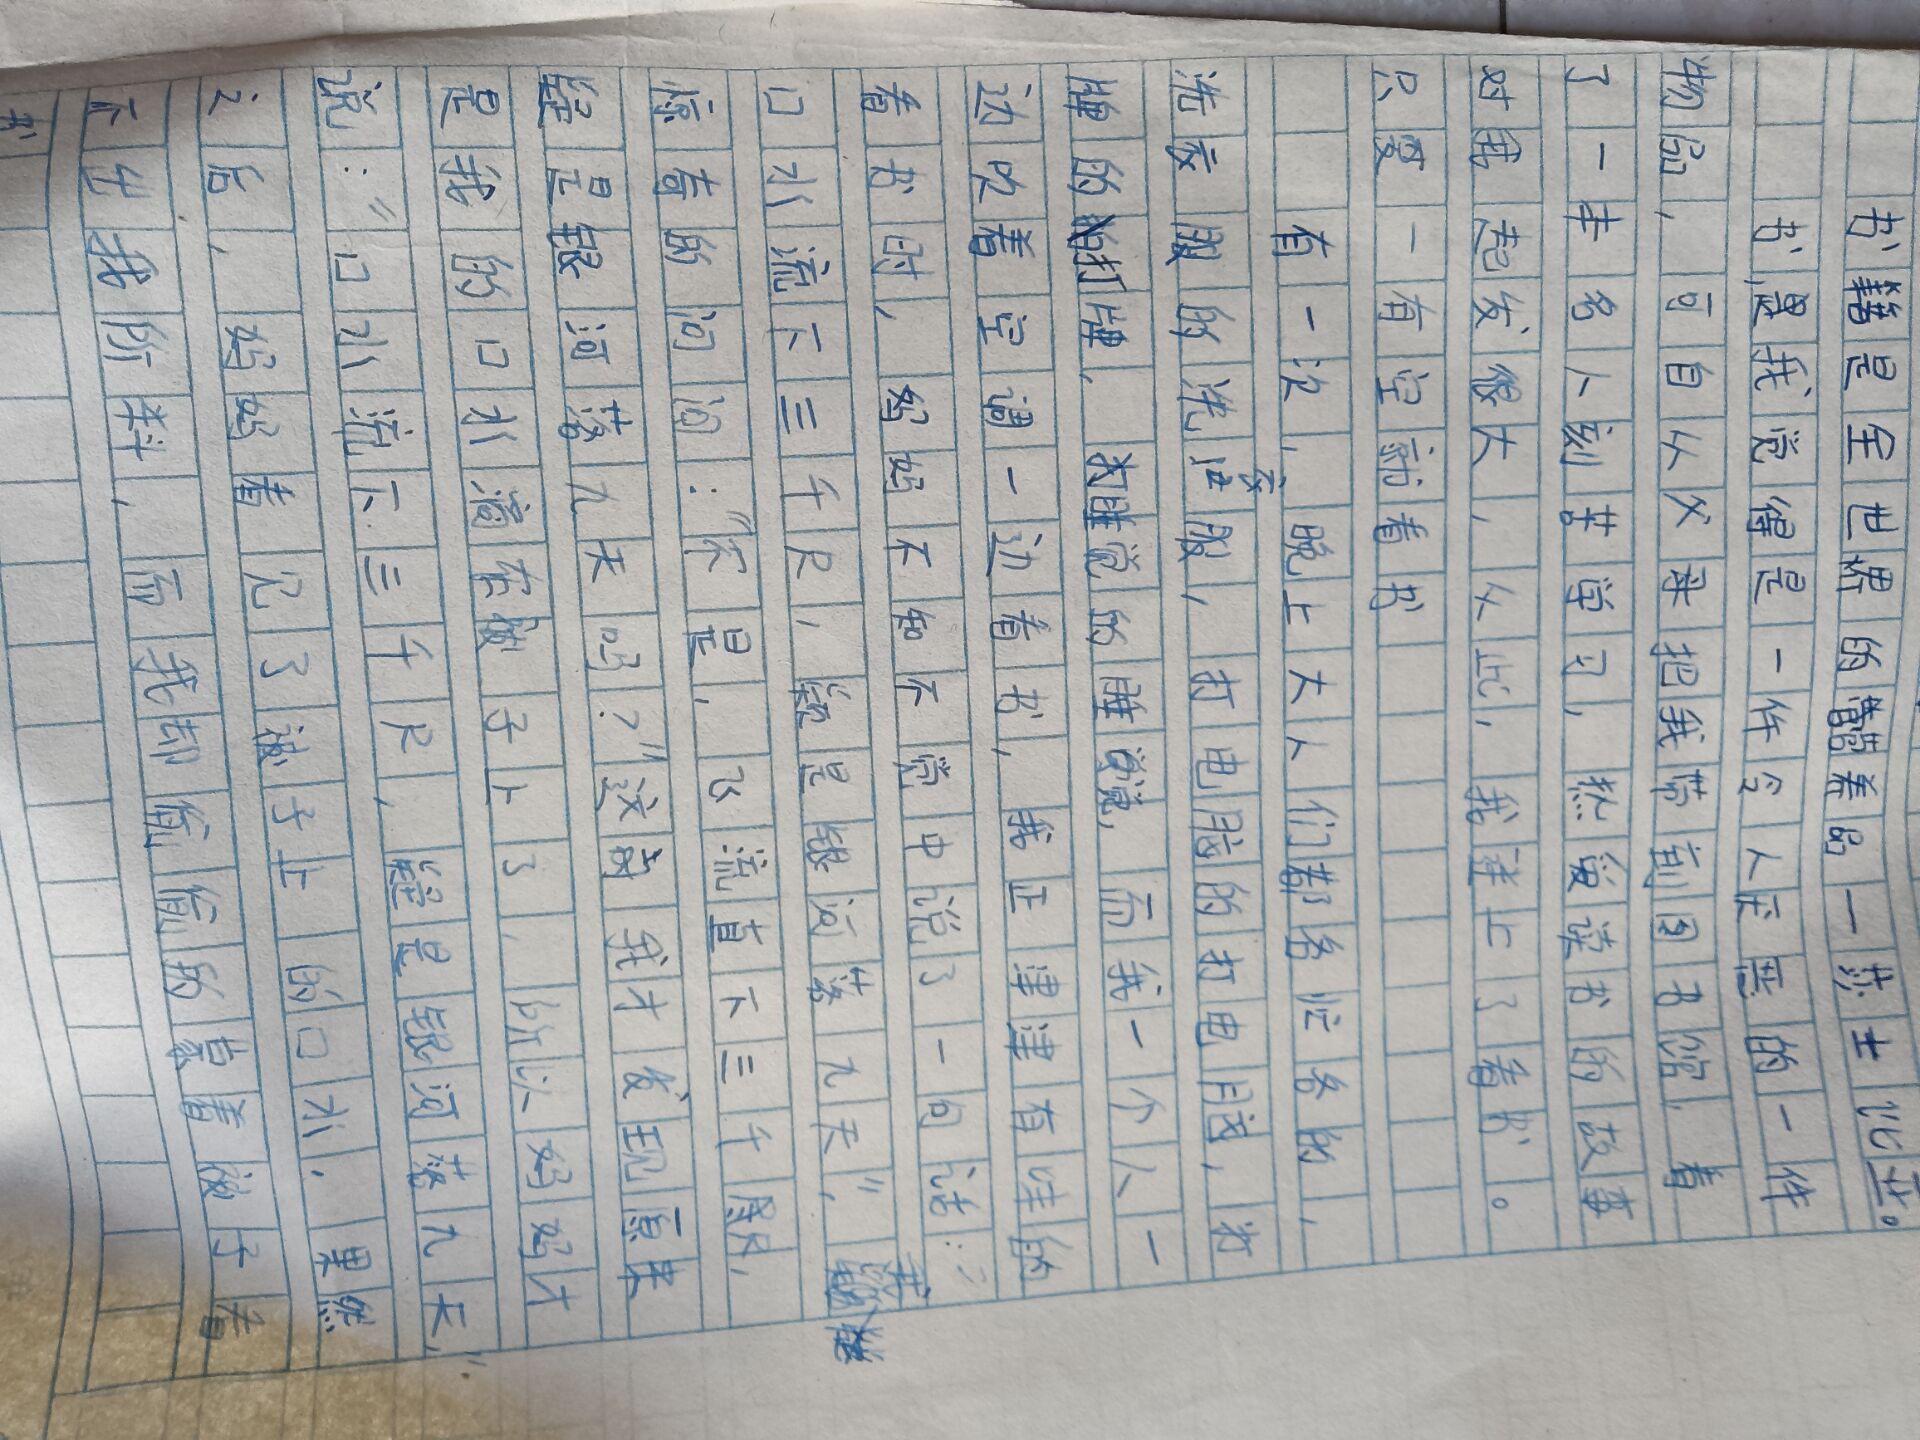 书籍是全世界的营养品一莎士比亚。
书,是我觉得是一件令人厌恶的一件
物品,可自从父亲把我带到图书馆,看
了一本名人刻苦学习,热爱读书的故事
对我起发很大,从此,我迷上了看书。
只要一有空就看书
有一次,晚上大人们都各忙各的,
洗衣服的洗衣服,打电脑的打电脑,打
牌的打牌,睡觉的睡觉,而我一个人一
边吹着空调一边看书,我正津津有味的
看书时,妈妈不知不觉中说了一句话:“
口水流下三千尺,疑是银河落九天”,我
惊奇的问问:“不是,飞流直下三千尺,
疑是银河落九天吗?”这时我才发现原来
是我的口水滴在被子上了,所以妈妈才
说:“口水流下三千尺,疑是银河落九天,”
之后,妈妈看见了被子上的口水,果然
不让我
,而我却偷偷的
着被子看
书